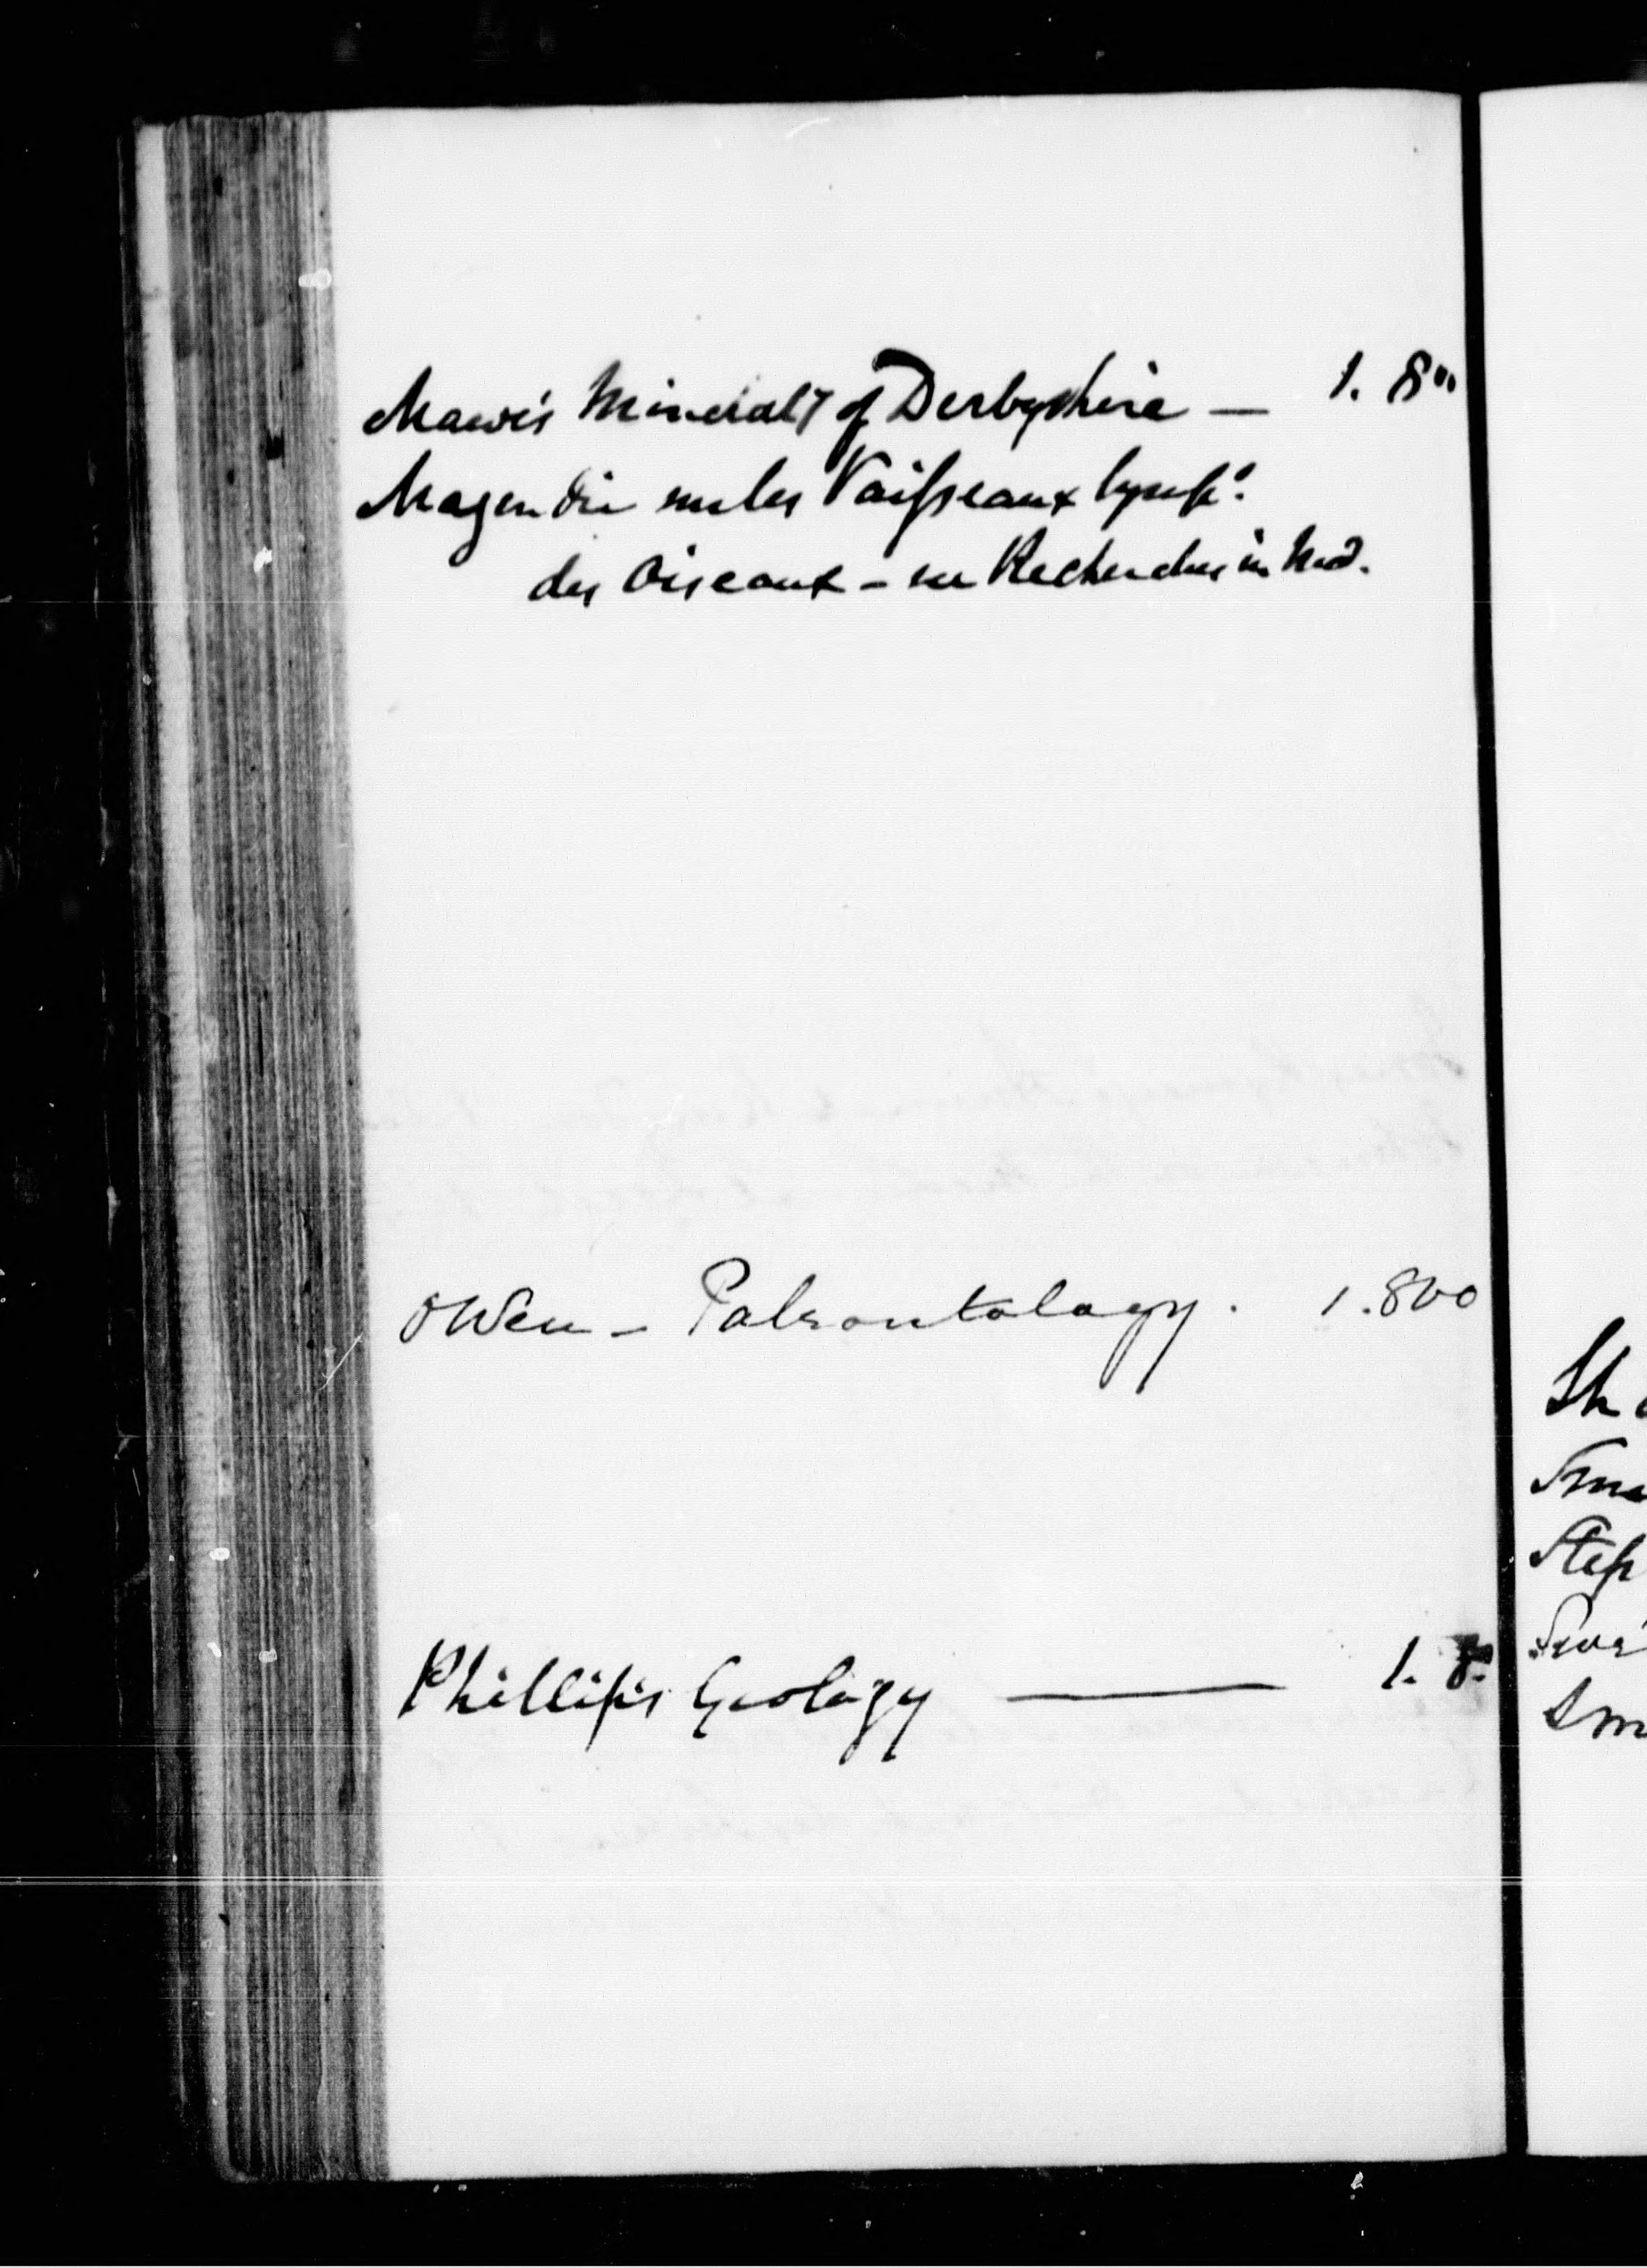 Mawe's Minerals of Derbyshire — 1. 8vo
Magendie sur les Vaisseaux lymph:
des Oiseaux – see Recherches in Med.
Owen – Palaeontology. 1.8vo
Phillips's Geology — 1. 8o
Sh
Sma
Steph
Swa
Sm